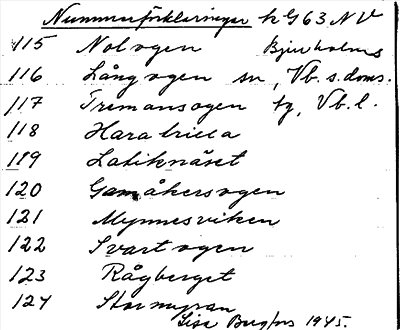 Nummerförklaringar k G63 NV
115 Nolvogen Bjurholms
116 Långvogen sn, Vb.s.doms.
117 Tremansvogen tg, Vb.l.
118 Hara
119 Latiknäset
120 Gamåkersvogen
121 Mynnesviken
122 Svartvogen
123 Rågberget
124 Stormyran
Lisa 1945.